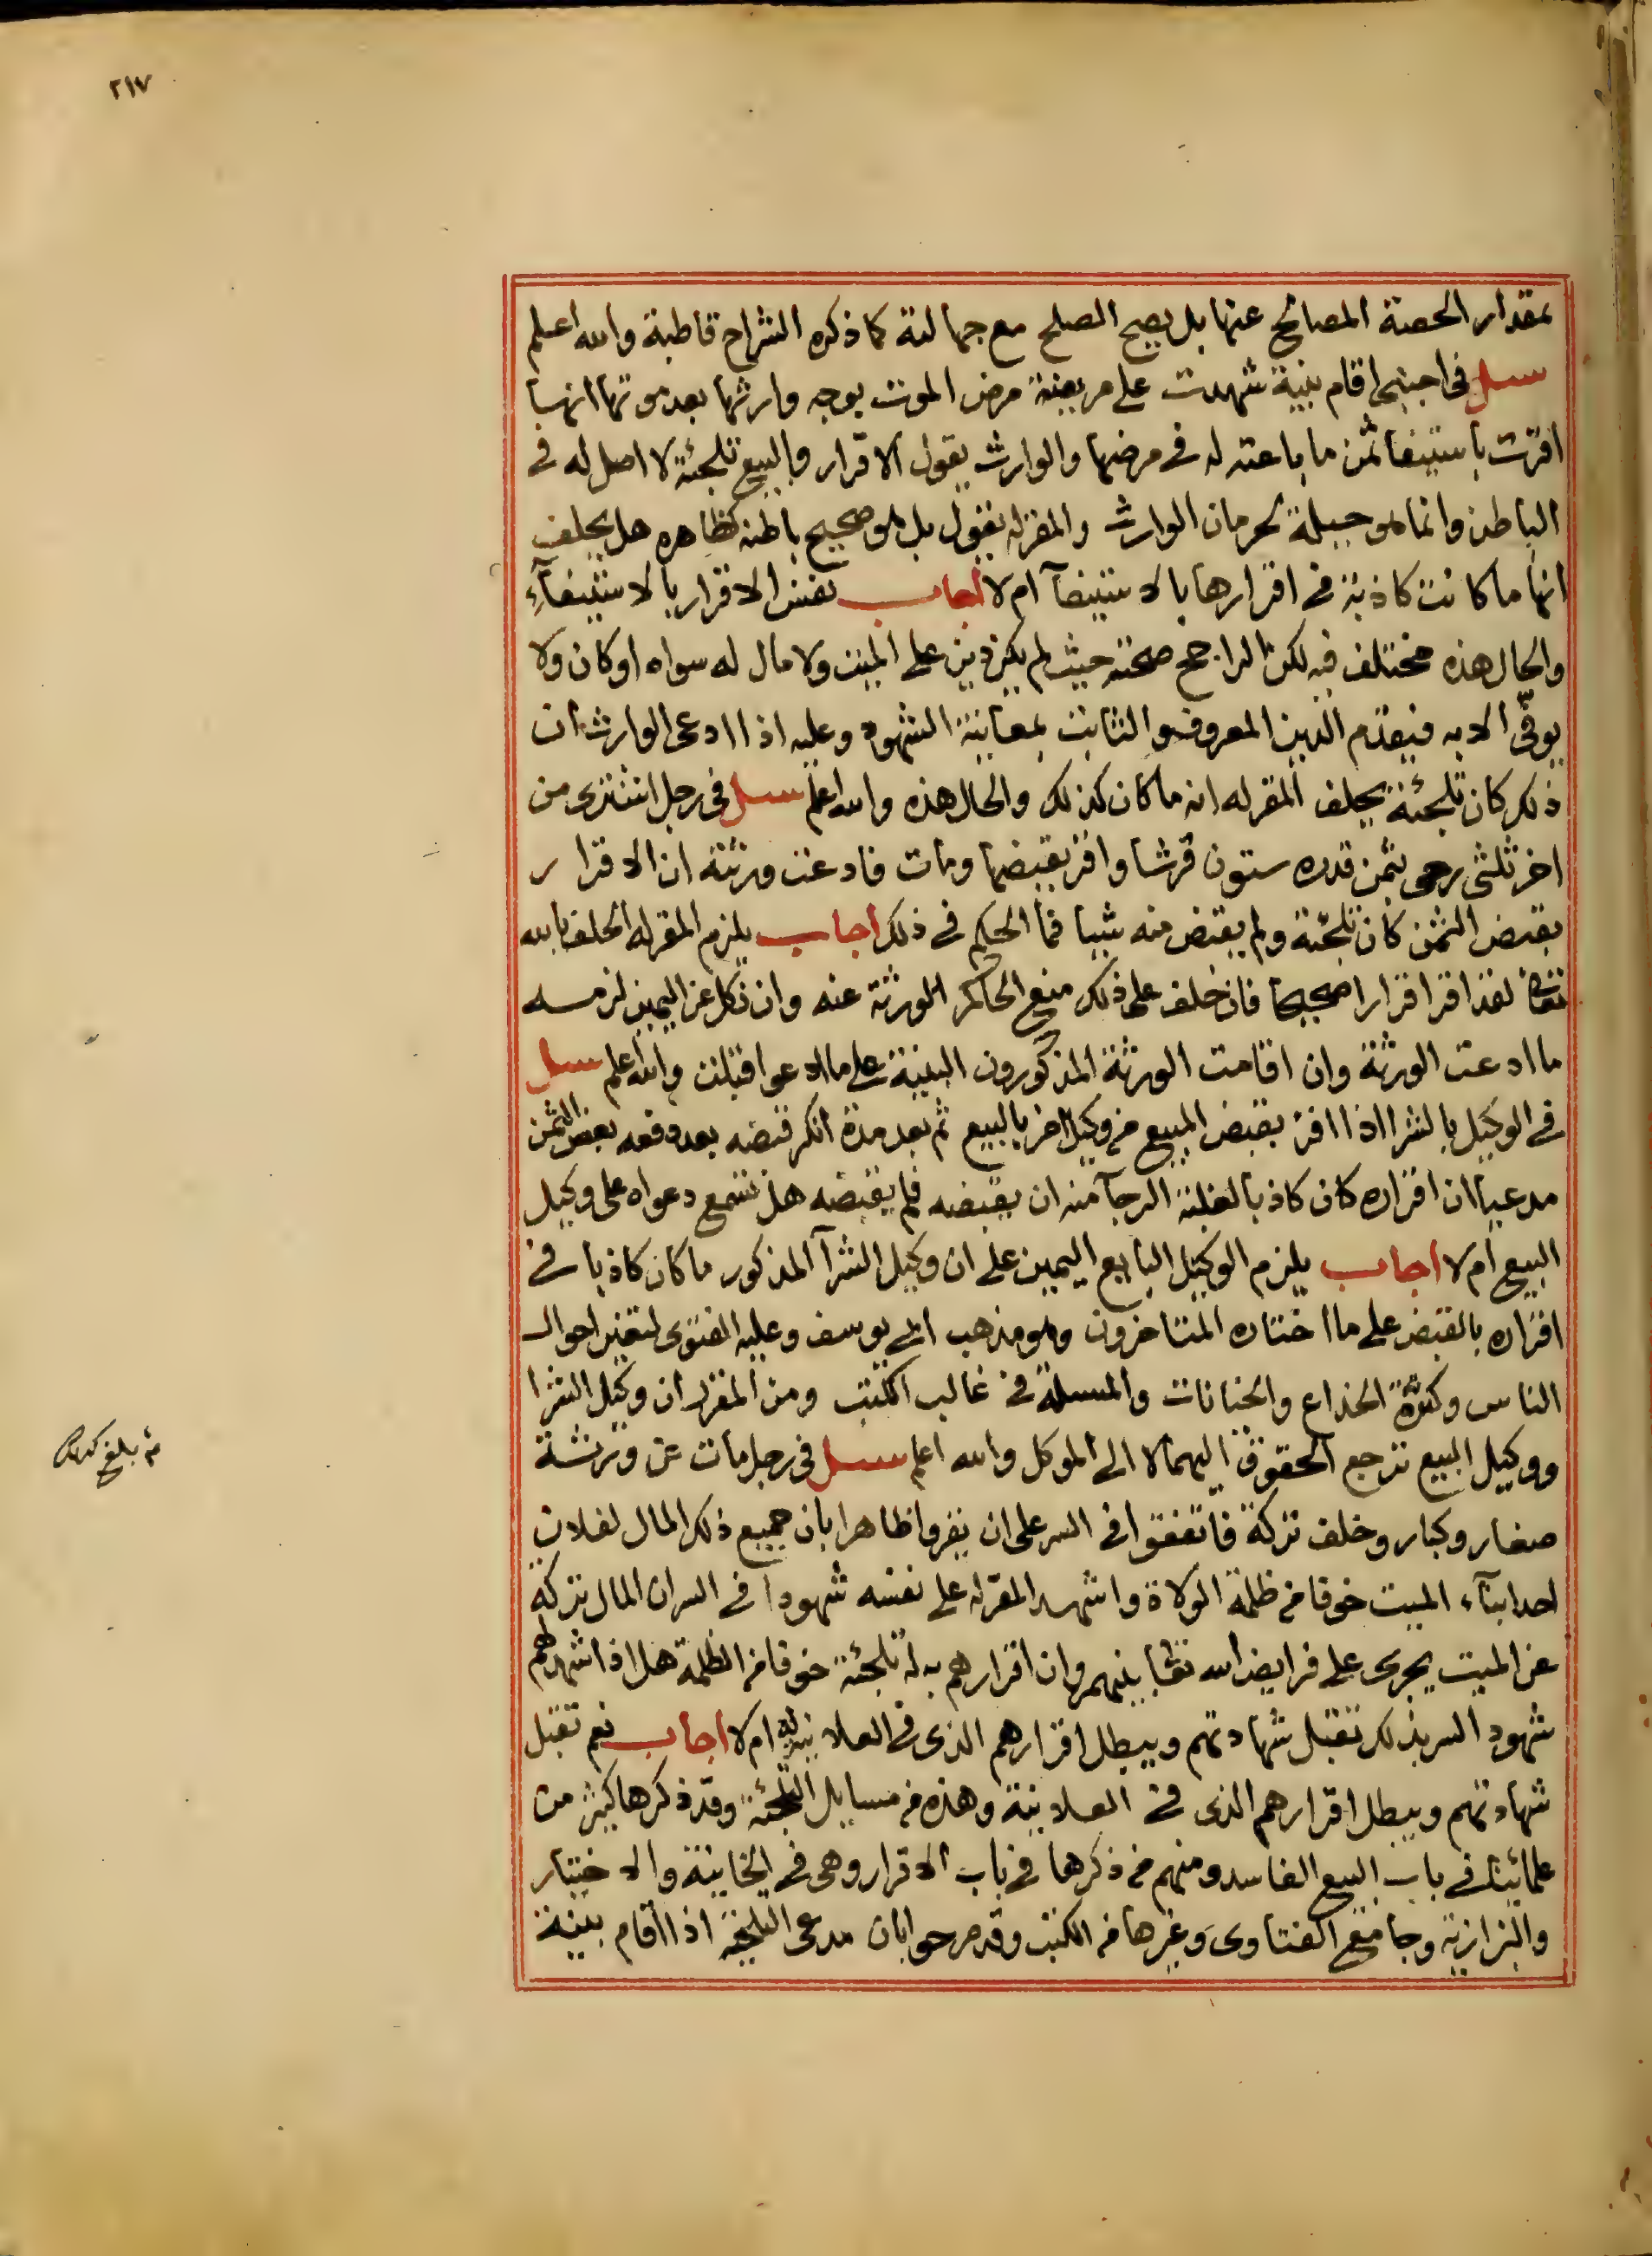 ٢١٧
بمقدار الحصة المصالح عنها بل يصح الصلح مع جهالته كما ذكره الشراح قاطبة والله اعلم
سىل فى اجنبى اقام بينة شهدت على مريضة مرض الموت بوجه وارثها بعد موتها انها
اقرت باستيفا ثمن ما باعته له فى مرضها والوارث يقول الاقرار والبيع تلجئة لا اصل له فى
الباطن وانما هو حيلة لحرمان الوارث والمقر له يقول بل هو صحيح باطنه كظاهره هل يحلف
انها ما كانت كاذبة فى اقرارها بالاستيفآ ام لا اجاب نفس الاقرار بالاستيفآء
والحال هذه مختلف فيه لكن الراجح صحته حيث لم يكن دين على الميت ولا مال له سواه او كان ولا
يوفى الا به فيقدم الدين المعروف والثابت بمعاينة الشهود وعليه اذا ادعى الوارث ان
ذلك كان تلجئة يحلف المقر له انه ما كان كذلك والحال هذه والله اعلم سىل فى رجل اشترى من
اخر ثلثى رحى بثمن قدره ستون قرشا واقر بقبضها ومات فادعت ورثته ان الاقرار
بقبض الثمن كان تلجئة ولم يقبض منه شيا فما الحكم فى ذلك اجاب يلزم المقر له الحلف بالله
تعالى لقد اقر اقرارا صحيحا فان حلف على ذلك منع الحاكم الورثة عنه وان نكل عن اليمين لزمه
ما ادعت الورثة وان اقامت الورثة المذكورون البينة على ما ادعوا قبلت والله اعلم سىل
فى الوكيل بالشرا اذا اقر بقبض المبيع من وكيل اخر بالبيع ثم بعد مدة انكر قبضه بعد دفعه بعض الثمن
مدعيا ان اقراره كان كاذبا لغلبة الرجآ منه ان يقبضه فلم يقبضه هل تسمع دعواه على وكيل
البيع ام لا اجاب يلزم الوكيل البايع اليمين على ان وكيل الشرآ المذكور ما كان كاذبا فى
اقراره بالقبض على ما اختاره المتاخرون وهو مذهب ابى يوسف وعليه الفتوى لتغير احوال
الناس وكثرة الخداع والخيانات والمسىلة فى غالب الكتب ومن المقرر ان وكيل الشرا
ووكيل البيع ترجع الحقوق اليهما لا الى الموكل والله اعلم سىل فى رجل مات عن ورثة
صغار وكبار وخلف تركة فاتفقوا فى السر على ان يقروا ظاهرا بان جميع ذلك المال لفلان
احد ابنآء الميت خوفا من ظلمة الولاة واشهد المقر له على نفسه شهودا فى السر ان المال تركة
عن الميت يجرى على فرايض الله تعالى بينهم وان اقرارهم به له تلجئة خوفا من الظلمة هل اذا شهد لهم
شهود السر بذلك تقبل شهادتهم ويبطل اقرارهم الذى فى العلانية له ام لا اجاب نعم تقبل
شهادتهم ويبطل اقرارهم الذى فى العلانية وهذه من مسايل التلجئة وقد ذكرها كثير من
علمائنا فى باب البيع الفاسد ومنهم من ذكرها فى باب الاقرار وهى فى الخانية والاختيار
والبزازية وجامع الفتاوى وغيرها من الكتب وقد صرحوا بان مدعى التلجئة اذا اقام بينة